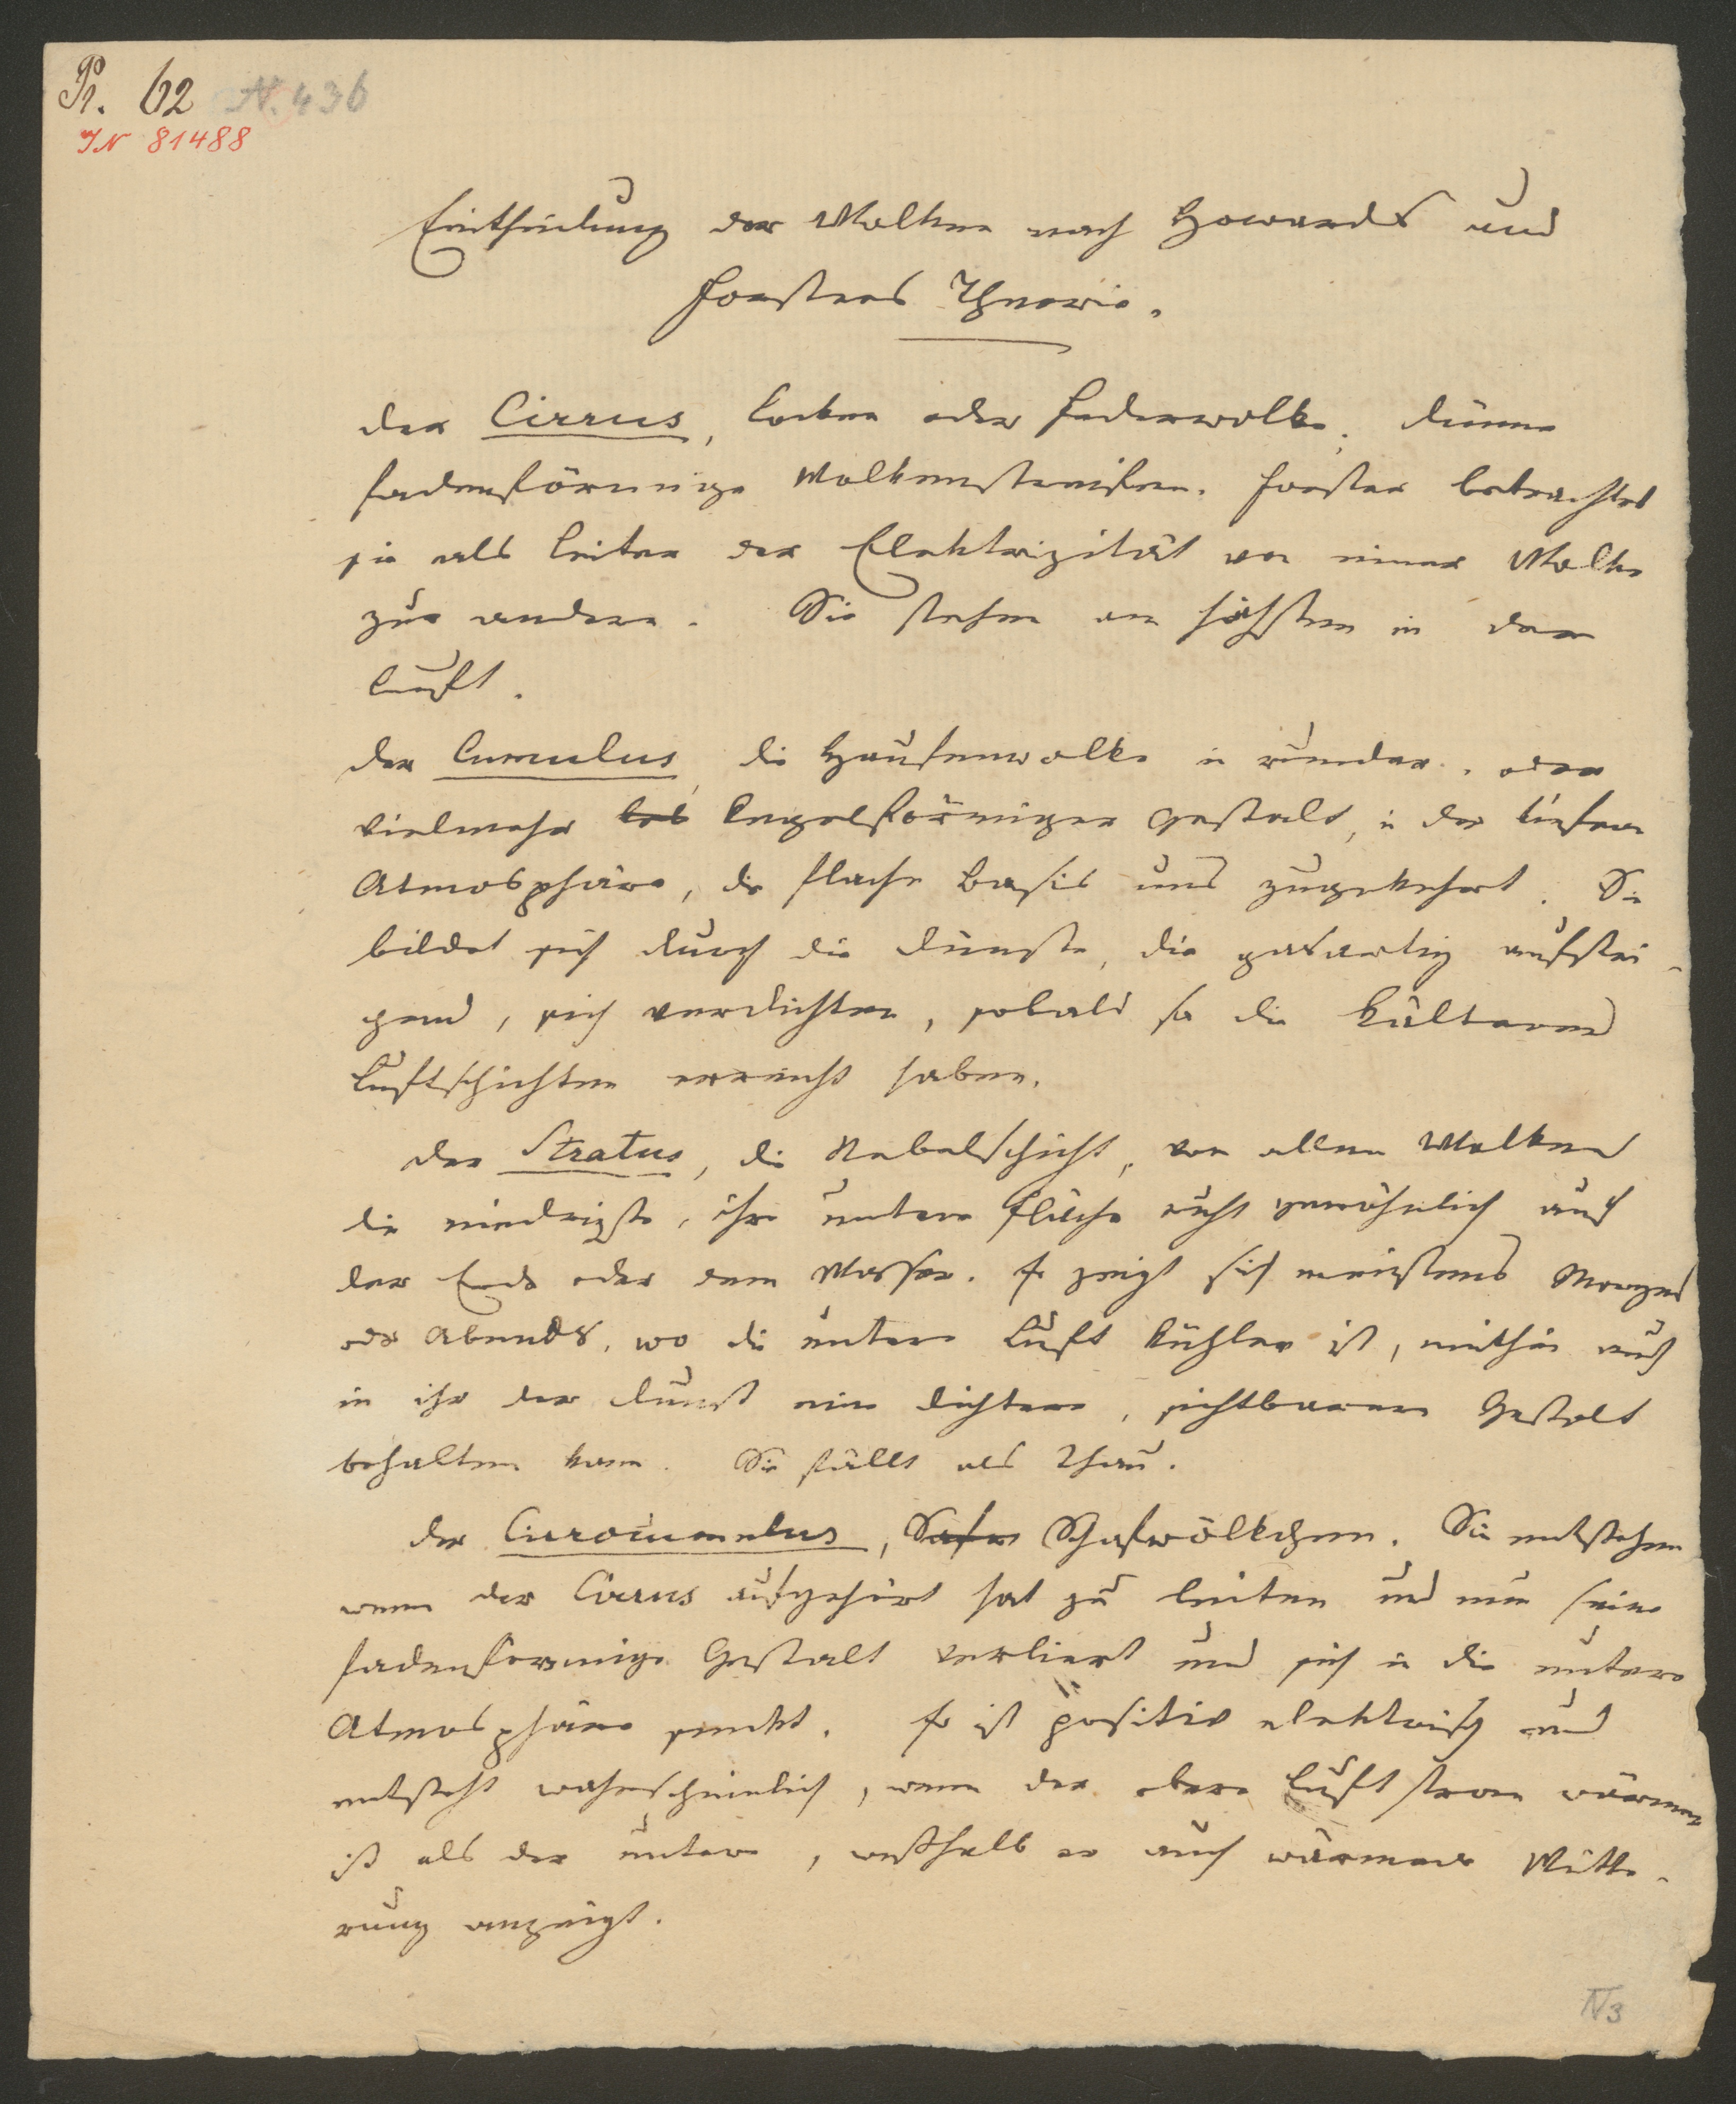 Pr. 62 N. 436
IN 81488
Eintheilung der Wolken nach Howards und
Forsters Theorie.
Der Cirrus, Locken oder Federwolke, dünne
fadenförmige Wolkenstreifen. Forster betrachtet
sie als Leiter der Elektrizität von einer Wolke
zur andern. Sie stehen am höchsten in der
Luft.
Der Cumulus, die Haufenwolke in runder, oder
vielmehr kegelförmiger Gestalt, in der tiefern
Atmosphäre, die flache Basis uns zugekehrt. Sie
bildet sich durch die Dünste, die gasartig aufstei-
gend, sich verdichten, sobald sie die kälteren
Luftschichten erreicht haben.
Der Stratus, die Nebelschicht, von allen Wolken
die niedrigste, ihre untere Fläche ruht gewöhnlich auf
der Erde oder dem Wasser. Er zeigt sich meistens Morgens
oder Abends, wo die untere Luft kühler ist, mithin auch
in ihr der Dunst eine dichtere, sichtbarere Gestalt
behalten kann. Sie fällt als Thau.
Der Cirrocumulus, Schafwölkchen. Sie entstehen
wenn der Cirrus aufgehört hat zu leiten und nun seine
fadenformige Gestalt verliert und sich in die untere
Atmosphäre senkt. Er ist positiv elektrisch und
entsteht wahrscheinlich, wenn der obere Luftstrom wärmer
ist als der untere, weßhalb er auch wärmere Witte-
rung anzeigt.
IV3